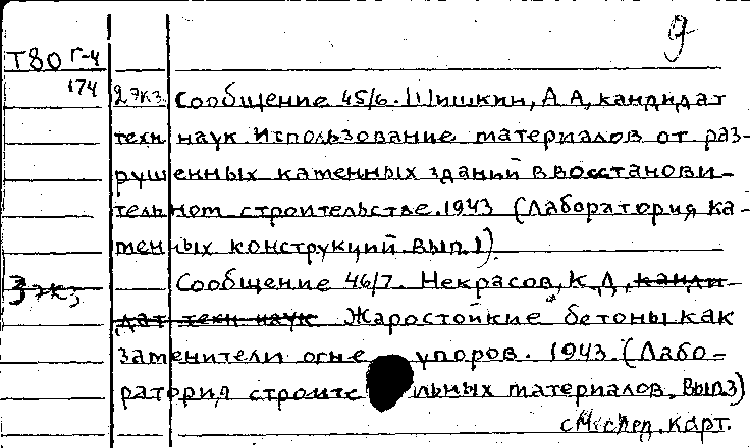 9
Т80 Г-4
174
2 экз. Сообщение 45/6. Шишкин, А.А, кандидат
техн наук. Использование материалов от раз-
рушенных каменных зданий в восстанови-
тельном строительстве. 1943 (Лаборатория ка-
менных конструкций. Вып. 1)
3 экз
Сообщение 46/7. Некрасов, К.Д, канди-
дат техн наук Жаростойкие бетоны как
заменители огнеупоров. 1943. (Лабо-
ратория строительных материалов. Вып. 3)
карт.